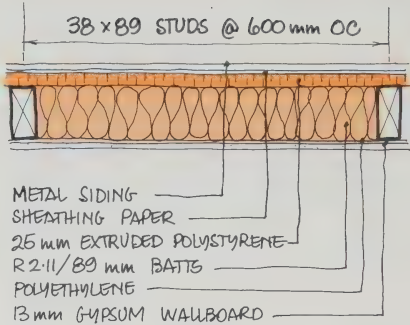 38 x 89 STUDS @ 600 mm OC
METAL SIDING
SHEATHING PAPER
25 mm EXTRUDED POLYSTYRENE
R 2.11/89 mm BATTS
POLYETHYLENE
13 mm GYPSUM WALLBOARD